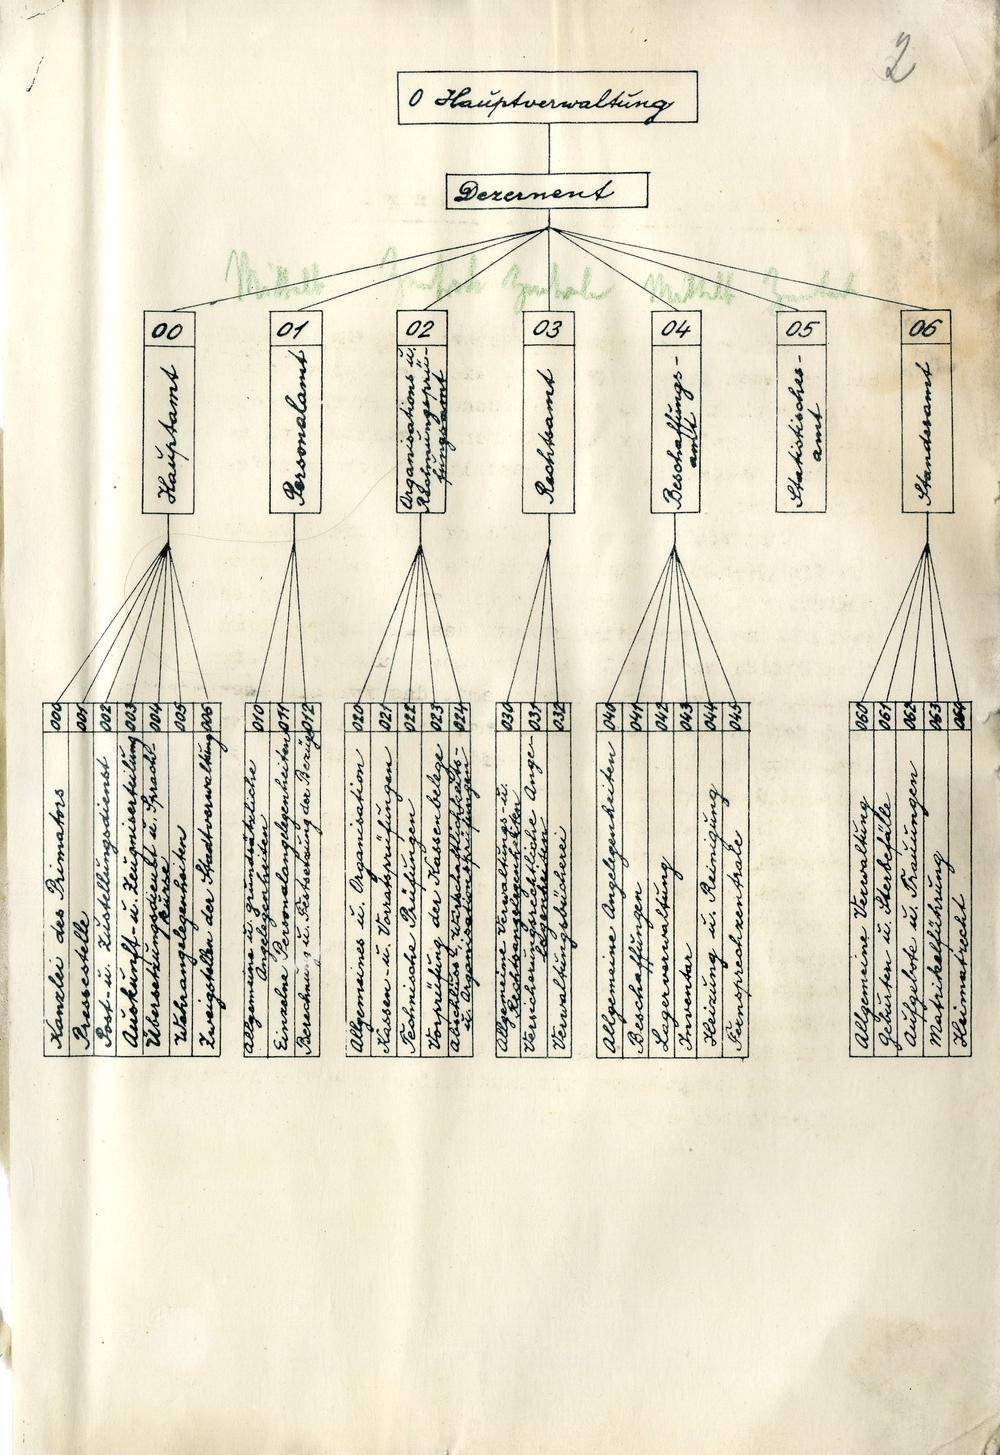 2
0 Hauptverwaltung
Dezernent
00
Hauptamt
01
Personalamt
02
Organisations u.
Rechnungsprü-
fungsamt
03
Rechtsamt
04
Beschaffungs-
amt
05
Statistisches-
amt
06
Standesamt
000
Kanzlei des Primators
001
Pressestelle
002
Post- u. Zustellungsdienst
003
Auskunft- u. Zeugniserteilung
004
Übersetzungsdienst u. Sprach-
kurse
005
Wehrangelegenheiten
006
Zweigstellen der Stadtverwaltung
010
Allgemeine u. grundsätzliche
Angelegenheiten
011
Einzelne Personalangelegenheiten
012
u. Festsetzung der Bezüge
020
Allgemeines u. Organisation
021
Kassen- u. Vorratsprüfungen
022
Technische Prüfungen
023
Vorprüfung der Kassenbelege
024
Abschluss-, Wirtschaftlichkeits-
u. Organisationsprüfungen
030
Allgemeine Verwaltungs- u.
Rechtsangelegenheiten
031
Versicherungsrechtliche Ange-
legenheiten
032
Verwaltungsbücherei
040
Allgemeine Angelegenheiten
041
Beschaffungen
042
Lagerverwaltung
043
Inventar
044
Heizung u. Reinigung
045
Fernsprechzentrale
060
Allgemeine Verwaltung
061
Geburten u. Sterbefälle
062
Aufgebote u. Trauungen
063
Matrikelführung
064
Heimatrecht